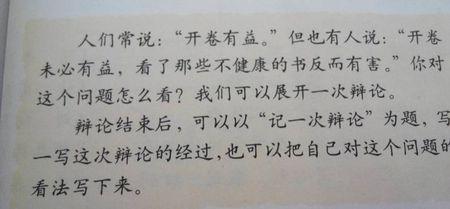 人们常说：“开卷有益。”但也有人说：“开卷
未必有益，看了那些不健康的书反而有害。”你对
这个问题怎么看？我们可以展开一次辩论。
辩论结束后，可以以“记一次辩论”为题，写
一写这次辩论的经过，也可以把自己对这个问题的
看法写下来。